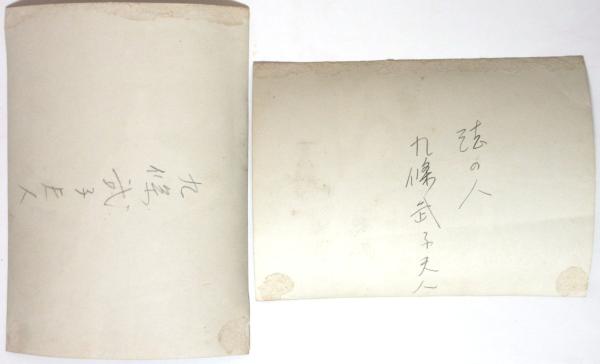 九條武子夫人
の人
九條武子夫人